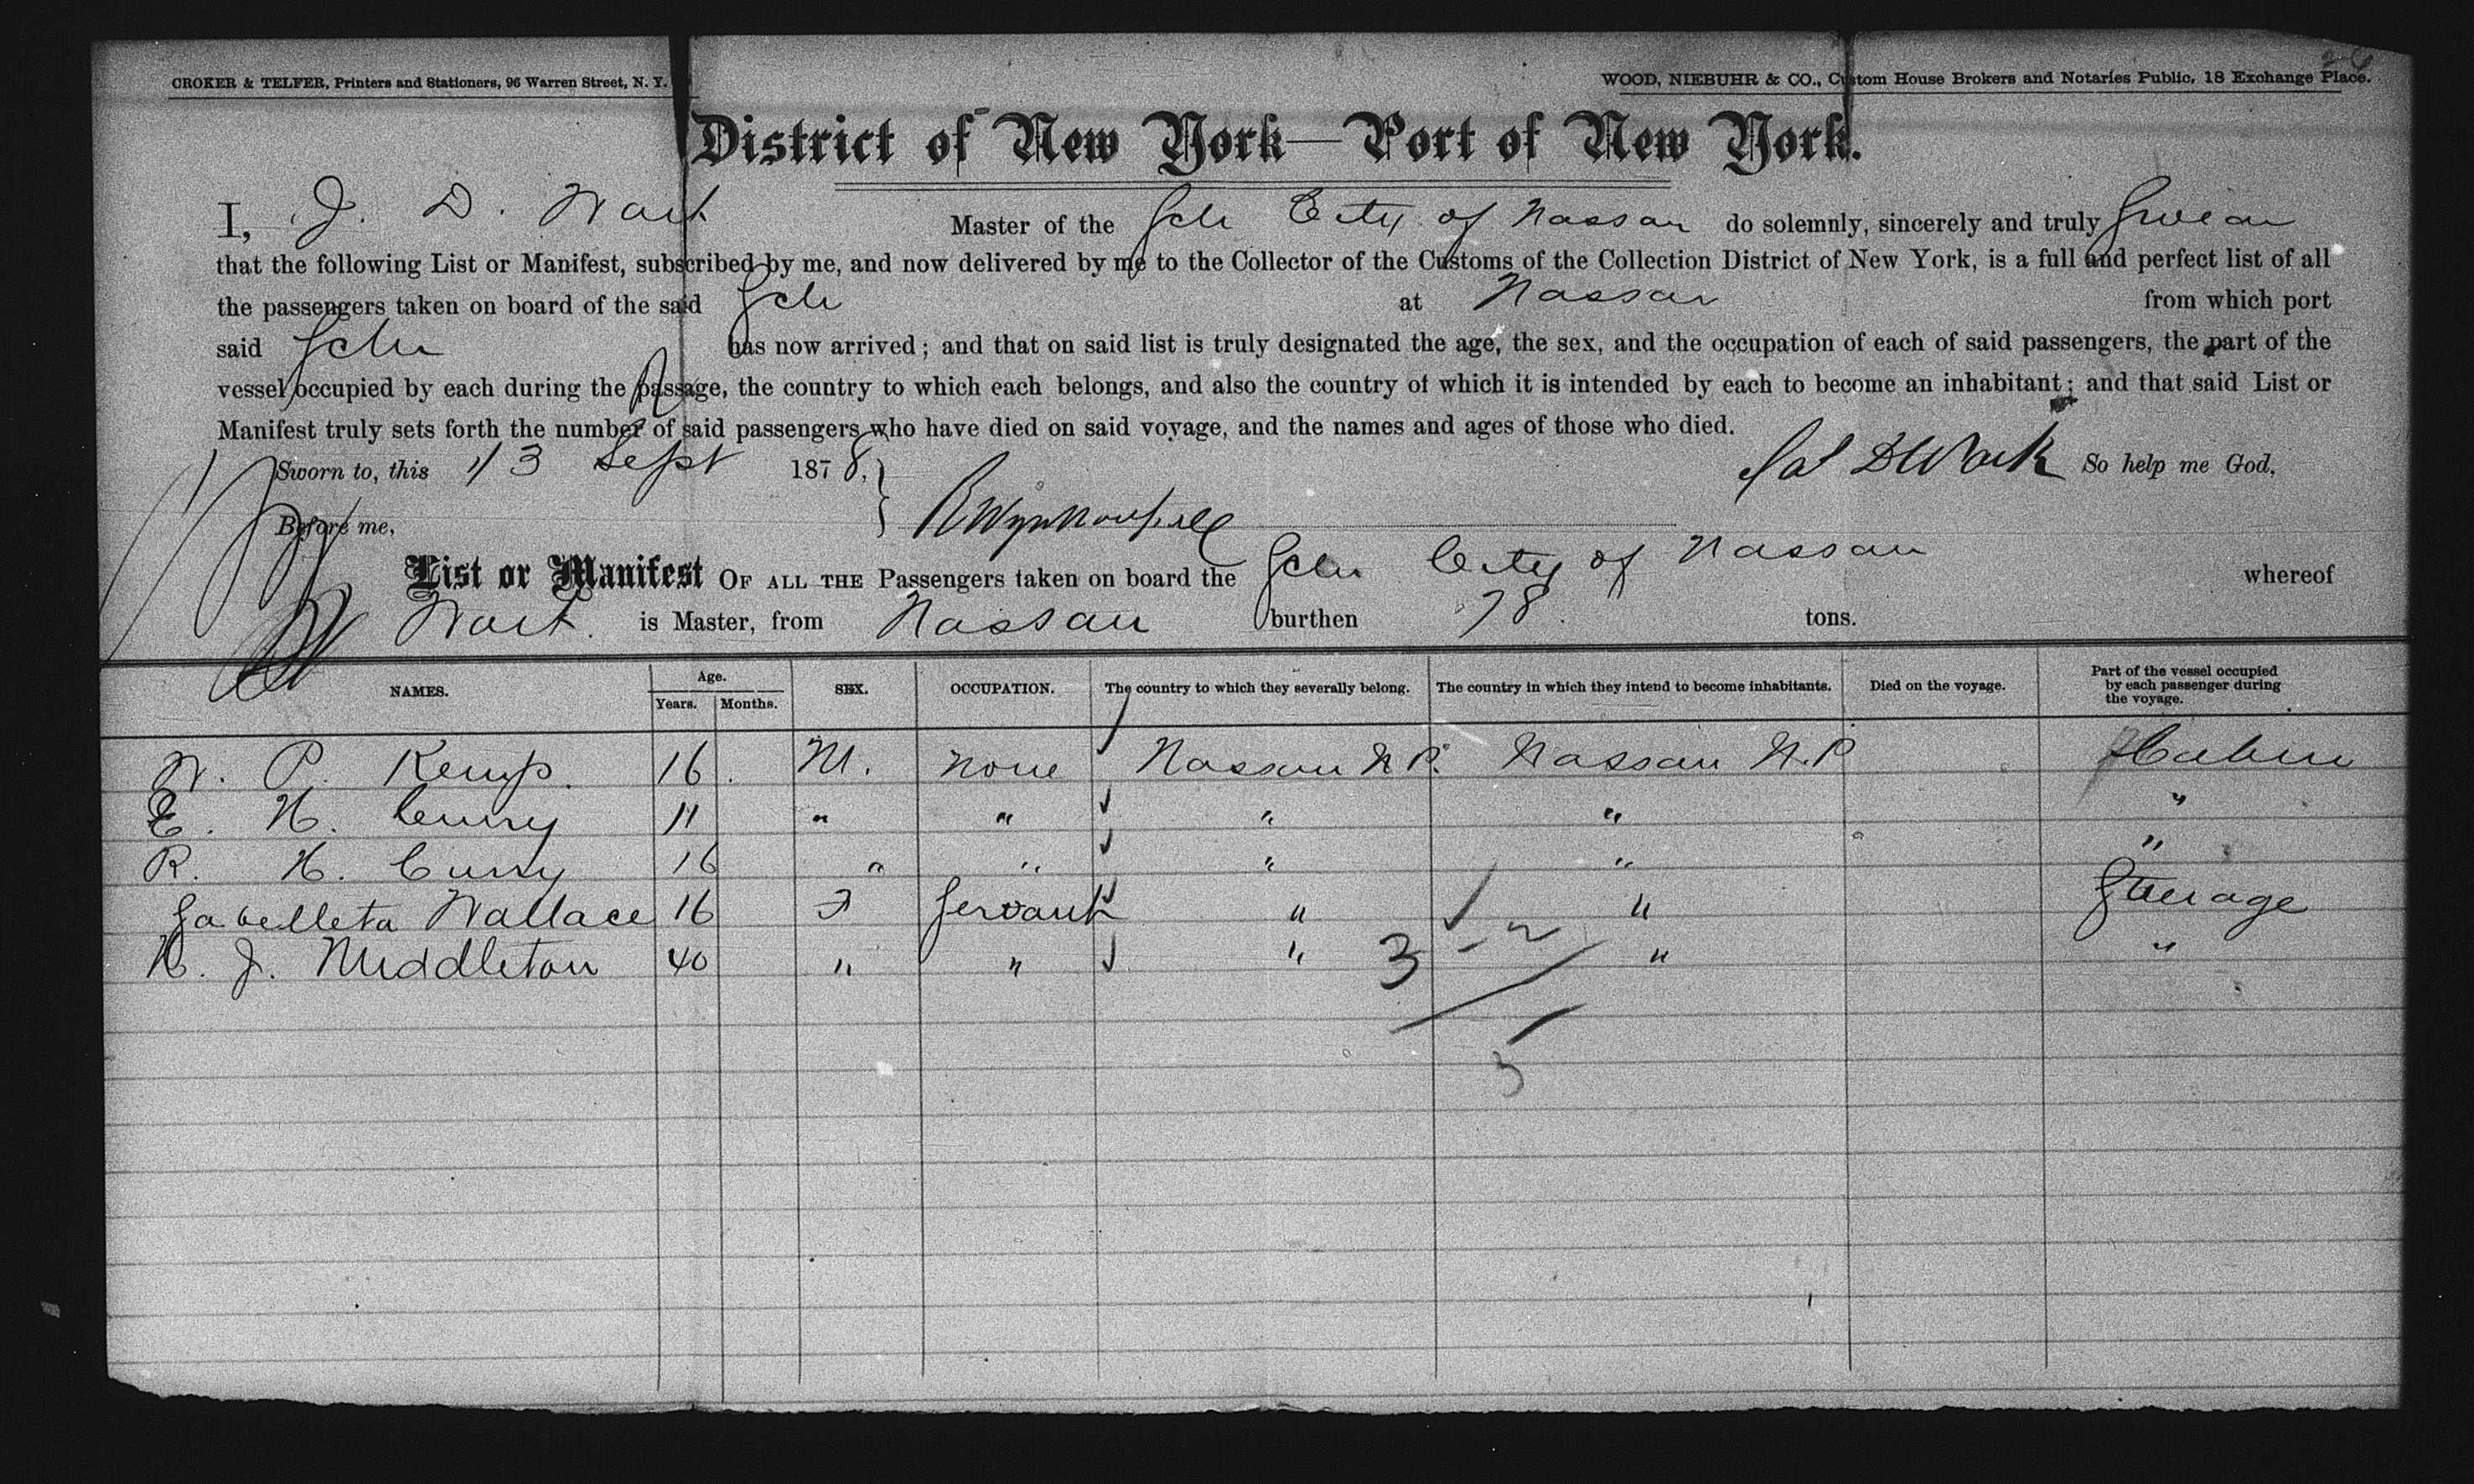 CROKER & TELFER, Printers and Stationers, 96 Warren Street, N. Y.
WOOD, NIEBUHR & CO., Custom House Brokers and Notaries Public, 18 Exchange Place.
District of New York—Port of New York.
I, J. D. Wait Master of the Schr City of Nassau do solemnly, sincerely and truly Swear
that the following List or Manifest, subscribed by me, and now delivered by me to the Collector of the Customs of the Collection District of New York, is a full and perfect list of all
the passengers taken on board of the said Schr at Nassau from which port
said Schr has now arrived; and that on said list is truly designated the age, the sex, and the occupation of each of said passengers, the part of the
vessel occupied by each during the passage, the country to which each belongs, and also the country of which it is intended by each to become an inhabitant; and that said List or
Manifest truly sets forth the number of said passengers who have died on said voyage, and the names and ages of those who died.
Sworn to, this 13 Sept 1878, So help me God,
Before me,
List or Manifest OF ALL THE Passengers taken on board the Schr City of Nassau whereof
Wait is Master, from Nassau burthen 78 tons.
NAMES. Age. Years. Months. SEX. OCCUPATION. The country to which they severally belong. The country in which they intend to become inhabitants. Died on the voyage. Part of the vessel occupied by each passenger during the voyage.
W. P. Kemp. 16. M. None Nassau N P. Nassau N. P Cabin
E. H. Curry 11 " " " " "
R. H. Curry 16 " " " " "
Wallace 16 F Servant " " Steerage
H. J. Middleton 40 " " " " "
3 - 2
5